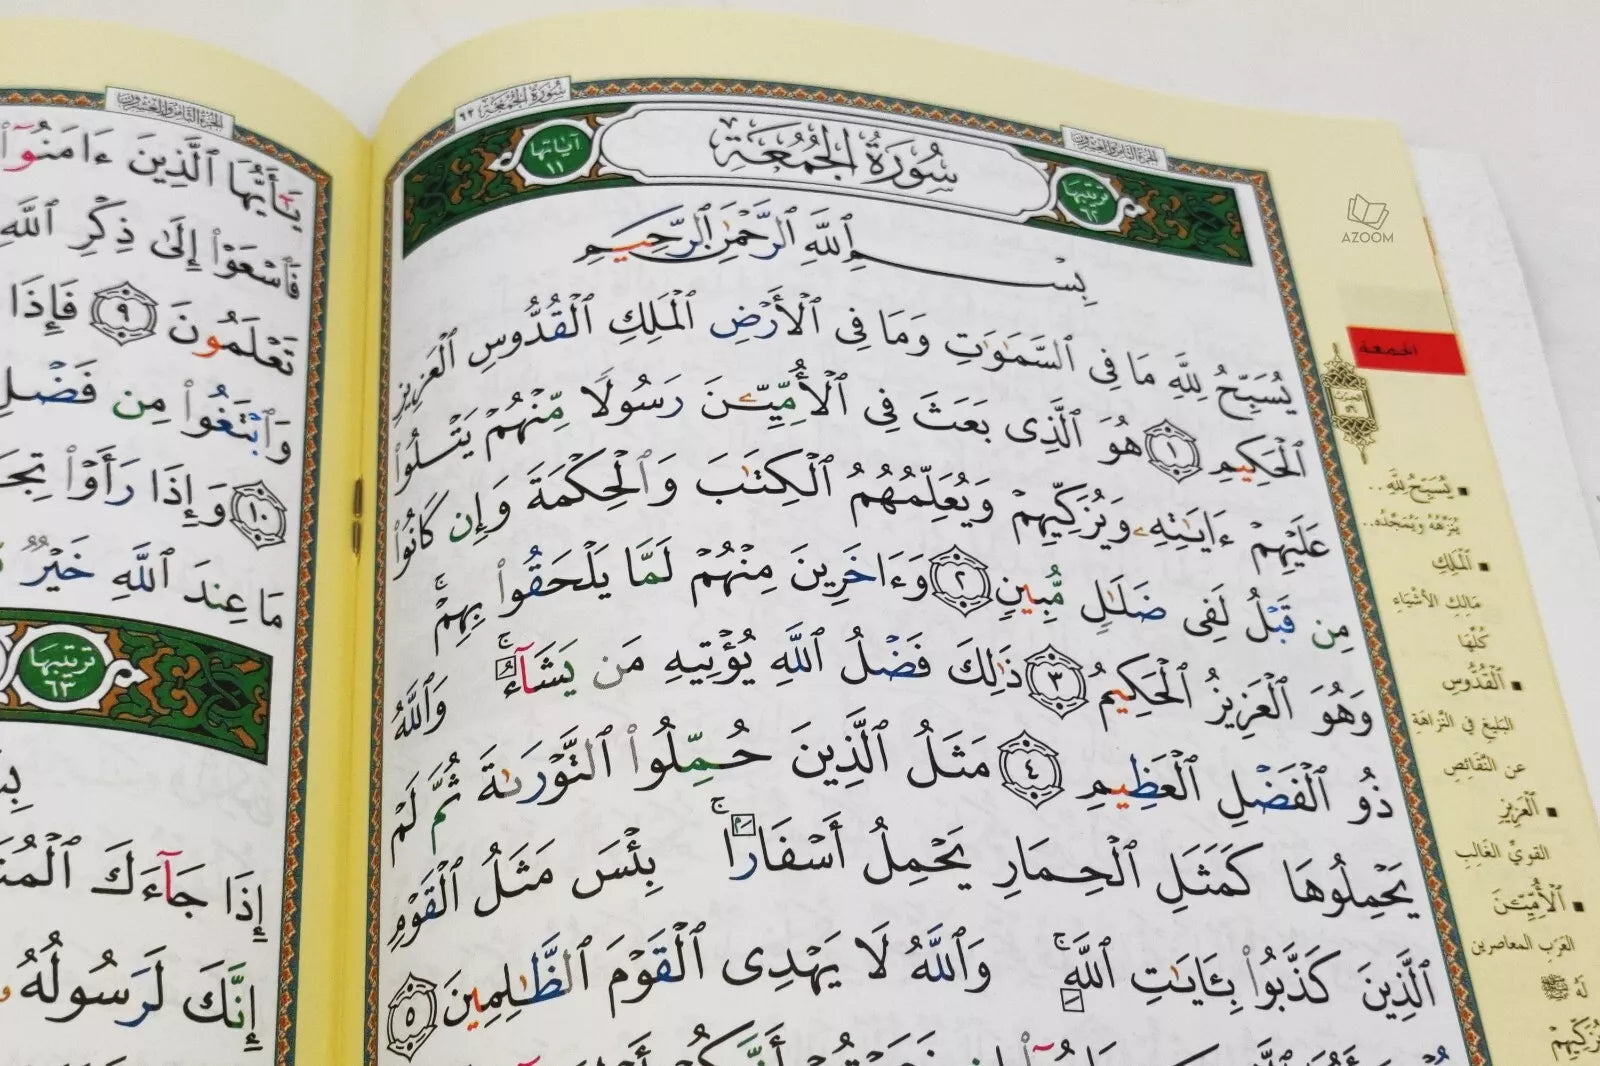 سُورَةُ الجُمُعَة ٦٢
الجزء الثامن والعشرون
ترتيبها
٦٢
سُورَةُ الجُمُعَة
آياتها
١١
بِسْمِ ٱللَّهِ ٱلرَّحْمَٰنِ ٱلرَّحِيمِ
يُسَبِّحُ لِلَّهِ مَا فِى ٱلسَّمَٰوَٰتِ وَمَا فِى ٱلْأَرْضِ ٱلْمَلِكِ ٱلْقُدُّوسِ ٱلْعَزِيزِ
ٱلْحَكِيمِ ١ هُوَ ٱلَّذِى بَعَثَ فِى ٱلْأُمِّيِّـۧنَ رَسُولًا مِّنْهُمْ يَتْلُوا۟
عَلَيْهِمْ ءَايَٰتِهِۦ وَيُزَكِّيهِمْ وَيُعَلِّمُهُمُ ٱلْكِتَٰبَ وَٱلْحِكْمَةَ وَإِن كَانُوا۟
مِن قَبْلُ لَفِى ضَلَٰلٍ مُّبِينٍ ٢ وَءَاخَرِينَ مِنْهُمْ لَمَّا يَلْحَقُوا۟ بِهِمْ ۚ
وَهُوَ ٱلْعَزِيزُ ٱلْحَكِيمُ ٣ ذَٰلِكَ فَضْلُ ٱللَّهِ يُؤْتِيهِ مَن يَشَآءُ ۚ وَٱللَّهُ
ذُو ٱلْفَضْلِ ٱلْعَظِيمِ ٤ مَثَلُ ٱلَّذِينَ حُمِّلُوا۟ ٱلتَّوْرَىٰةَ ثُمَّ لَمْ
يَحْمِلُوهَا كَمَثَلِ ٱلْحِمَارِ يَحْمِلُ أَسْفَارًۢا ۚ بِئْسَ مَثَلُ ٱلْقَوْمِ
ٱلَّذِينَ كَذَّبُوا۟ بِـَٔايَٰتِ ٱللَّهِ ۚ وَٱللَّهُ لَا يَهْدِى ٱلْقَوْمَ ٱلظَّٰلِمِينَ ٥
AZOOM
الجمعة
الحزب
٥٦
يُسَبِّحُ لِلَّهِ..
يُنَزِّهُهُ وَيُمَجِّدُه..
ٱلْمَلِكِ
مَالِكِ الأَشْيَاءِ
كُلِّهَا
ٱلْقُدُّوسِ
البَلِيغِ فِي النَّزَاهَةِ
عن النَّقَائِصِ
ٱلْعَزِيزِ
القويِّ الغَالِبِ
ٱلْأُمِّيِّـۧنَ
العَرَبِ المعاصرين
لَهُ ﷺ
يُزَكِّيهِمْ
الجزء الثامن والعشرون
يَٰٓأَيُّهَا ٱلَّذِينَ ءَامَنُوٓا۟
فَٱسْعَوْا۟ إِلَىٰ ذِكْرِ ٱللَّهِ
تَعْلَمُونَ ٩ فَإِذَا
وَٱبْتَغُوا۟ مِن فَضْلِ
١٠ وَإِذَا رَأَوْا۟
مَا عِندَ ٱللَّهِ خَيْرٌ
ترتيبها
٦٣
إِذَا جَآءَكَ
إِنَّكَ لَرَسُولُهُ